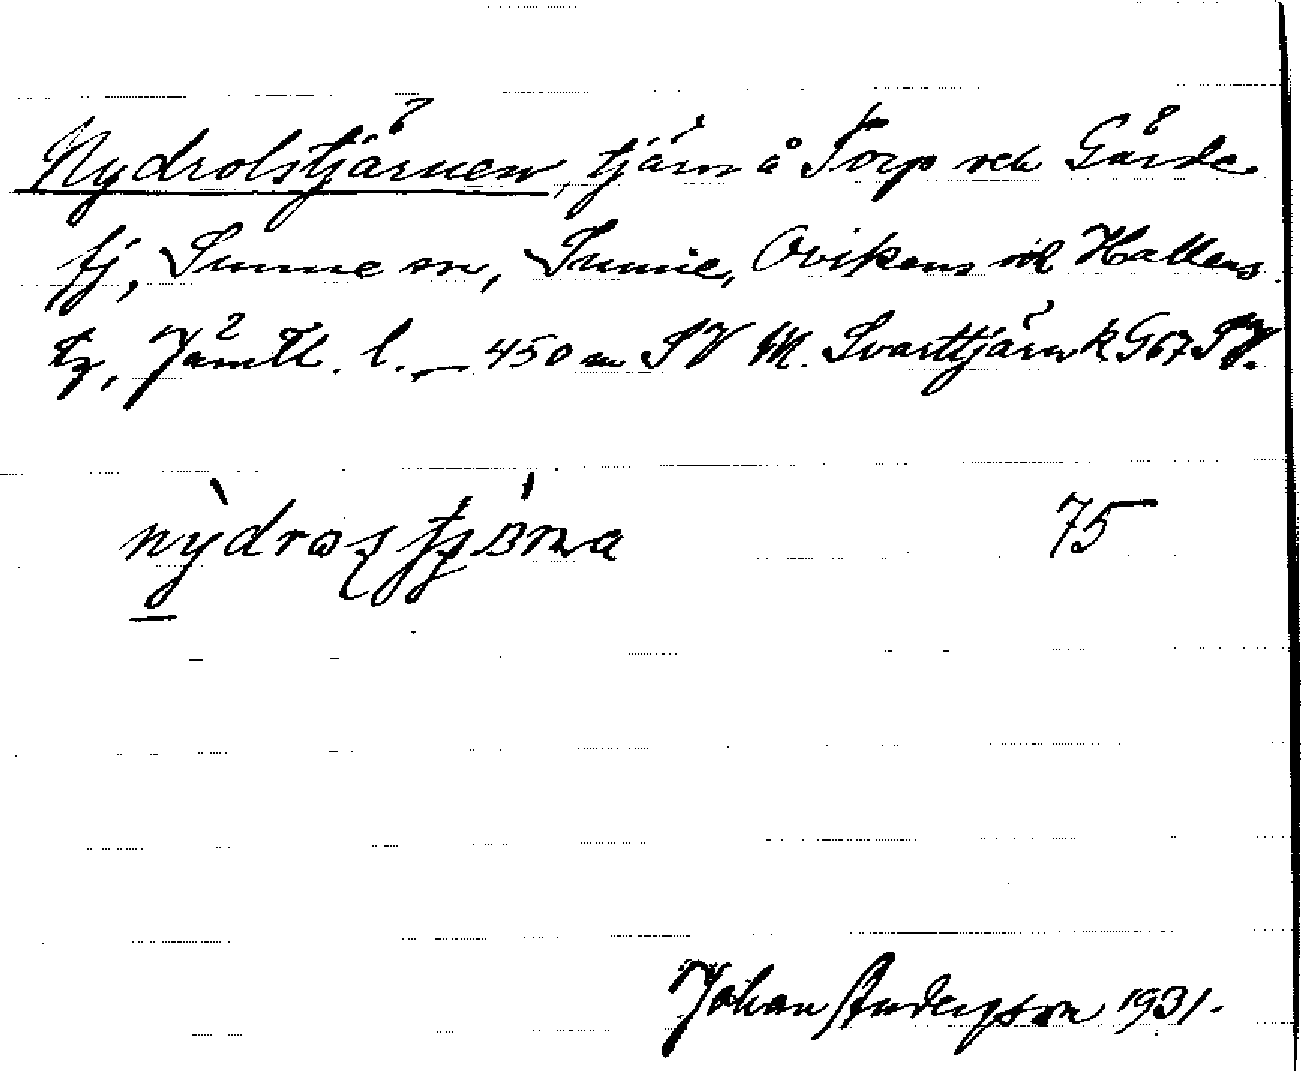 Nydrolstjärnen, tjärn å Torp och Gärde
fj, Sunne sn, Sunne, Ovikens och Hallens
tg, Jämtl. l. — 450 m SV M. Svarttjärn k G67SV.
nỳdroștjɜ́rna 75
Johan Andersson 1931.